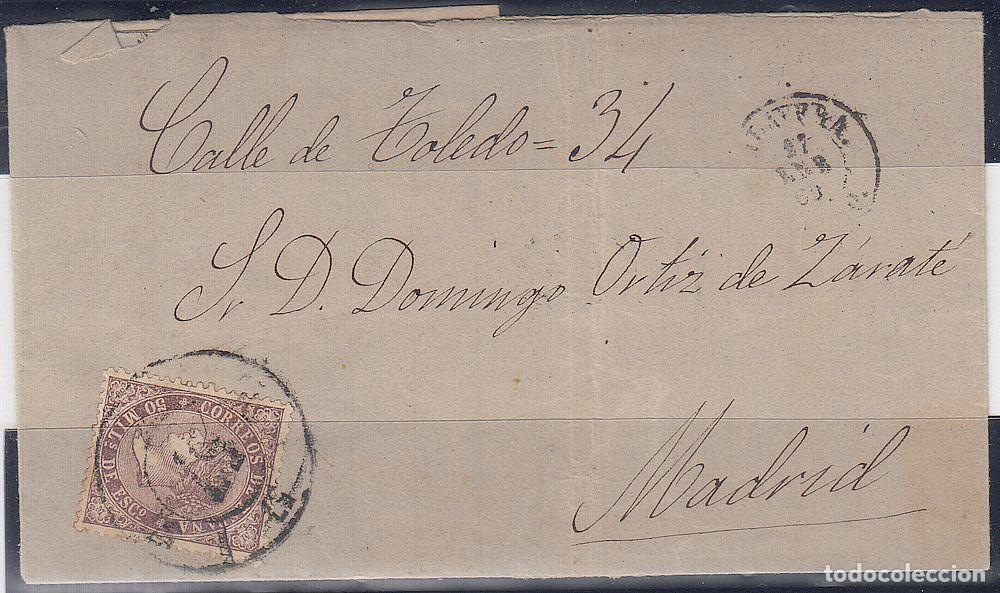 Calle de Toledo = 34
27
ENE
Sr D. Domingo Ortiz de Zárate
CORREOS DE ESPAÑA
50 MILS DE ESCO
Madrid
todocoleccion.net